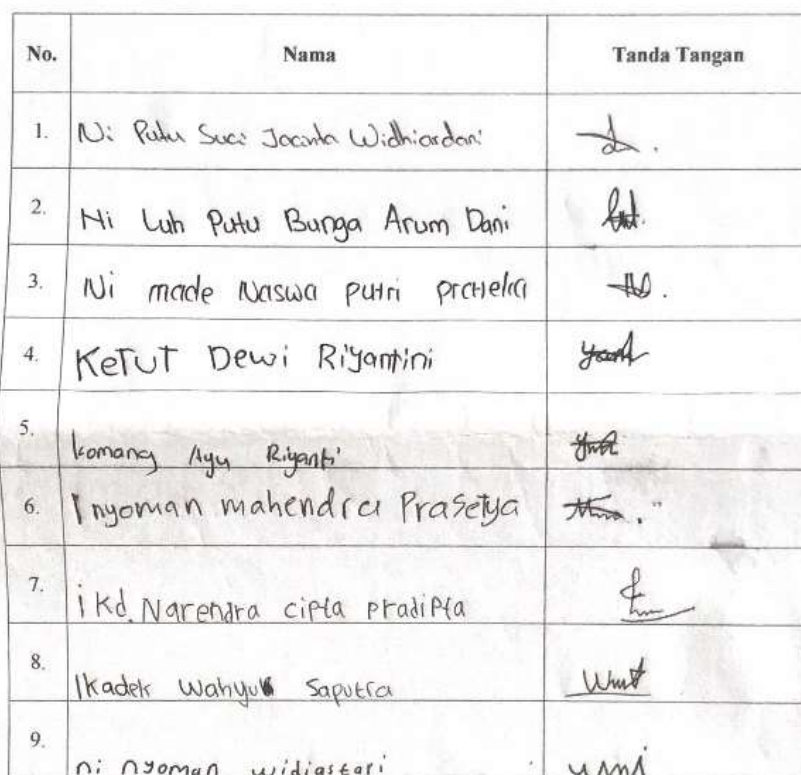 No. Nama Tanda Tangan
1. Ni Putu Suci Jacinta Widhiardani
2. Ni Luh Putu Bunga Arum Dani
3. Ni made Naswa putri
4. KeTUT Dewi Riyantini
5. komang Ayu Riyanti
6. I nyoman mahendra Prasetya
7. i Kd. Narendra cipta pradipta
8. I kadek Wahyu Saputra
9. ni nyoman widiastari